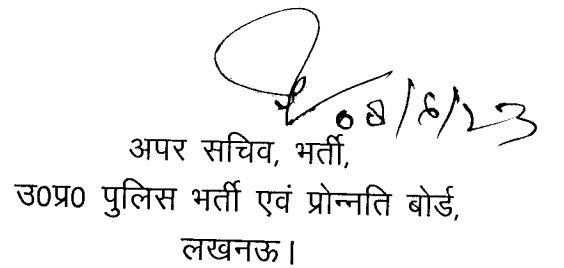 08/6/23
अपर सचिव, भर्ती,
उ0प्र0 पुलिस भर्ती एवं प्रोन्नति बोर्ड,
लखनऊ।